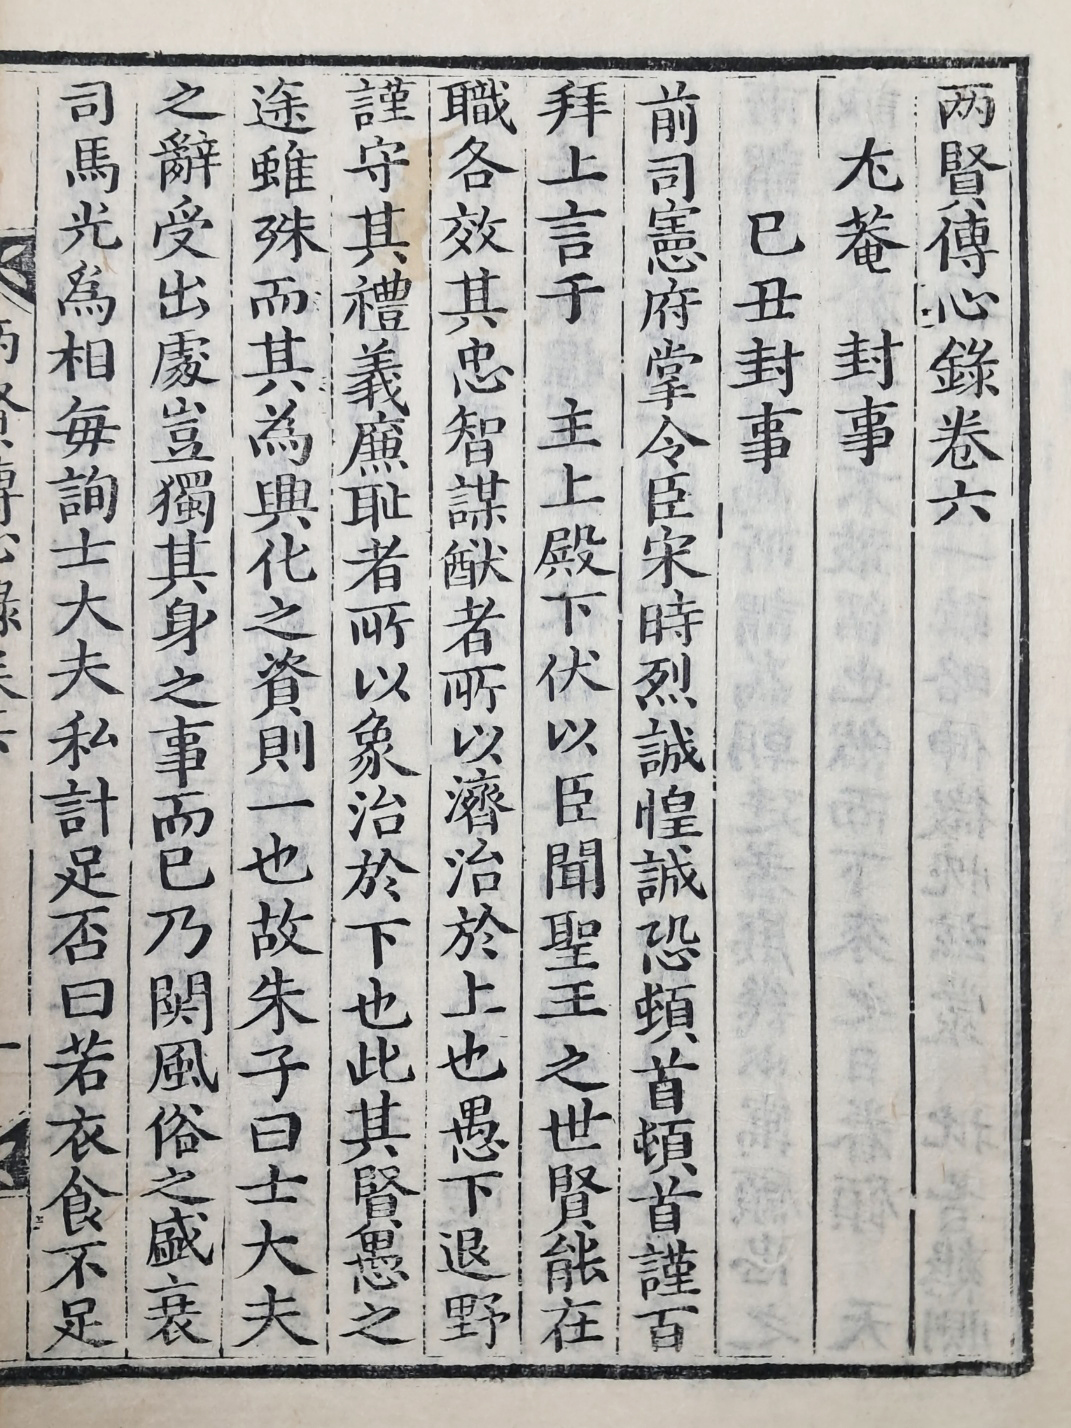 两賢傳心錄卷六
尤菴 封事
己丑封事
前司憲府掌令臣宋時烈誠惶誠恐頓首頓首謹百
拜上言于 主上殿下伏以臣聞聖王之世賢能在
職各效其忠智謀猷者所以濟治於上也愚下退野
謹守其禮義廉恥者所以象治於下也此其賢愚之
途雖殊而其為興化之資則一也故朱子曰士大夫
之辭受出處豈獨其身之事而已乃関風俗之盛衰
司馬光爲相每詢士大夫私計足否曰若衣食不足
两賢傳心錄卷六 一